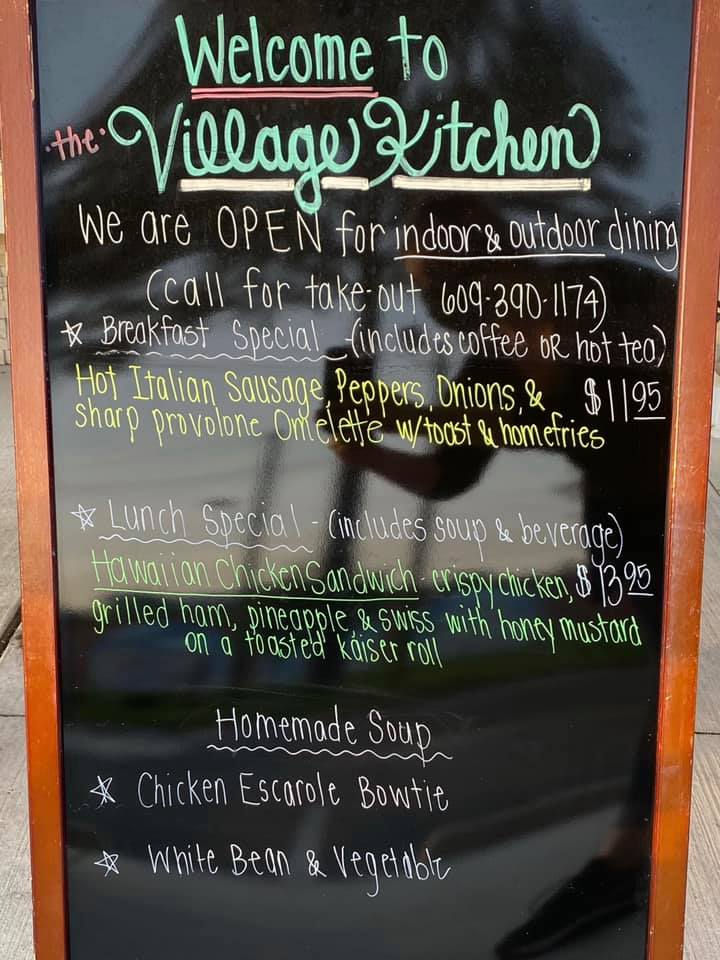 Welcome to
the Village Kitchen
We are OPEN for indoor & outdoor dining
(call for take-out 609-390-1174)
☆ Breakfast Special - (includes coffee OR hot tea)
Hot Italian Sausage, Peppers, Onions, & $11 95
sharp provolone Omelette w/toast & homefries
☆ Lunch Special - (includes soup & beverage)
Hawaiian Chicken Sandwich - crispy chicken, $13 95
grilled ham, pineapple & swiss with honey mustard
on a toasted kaiser roll
Homemade Soup
☆ Chicken Escarole Bowtie
☆ White Bean & Vegetable